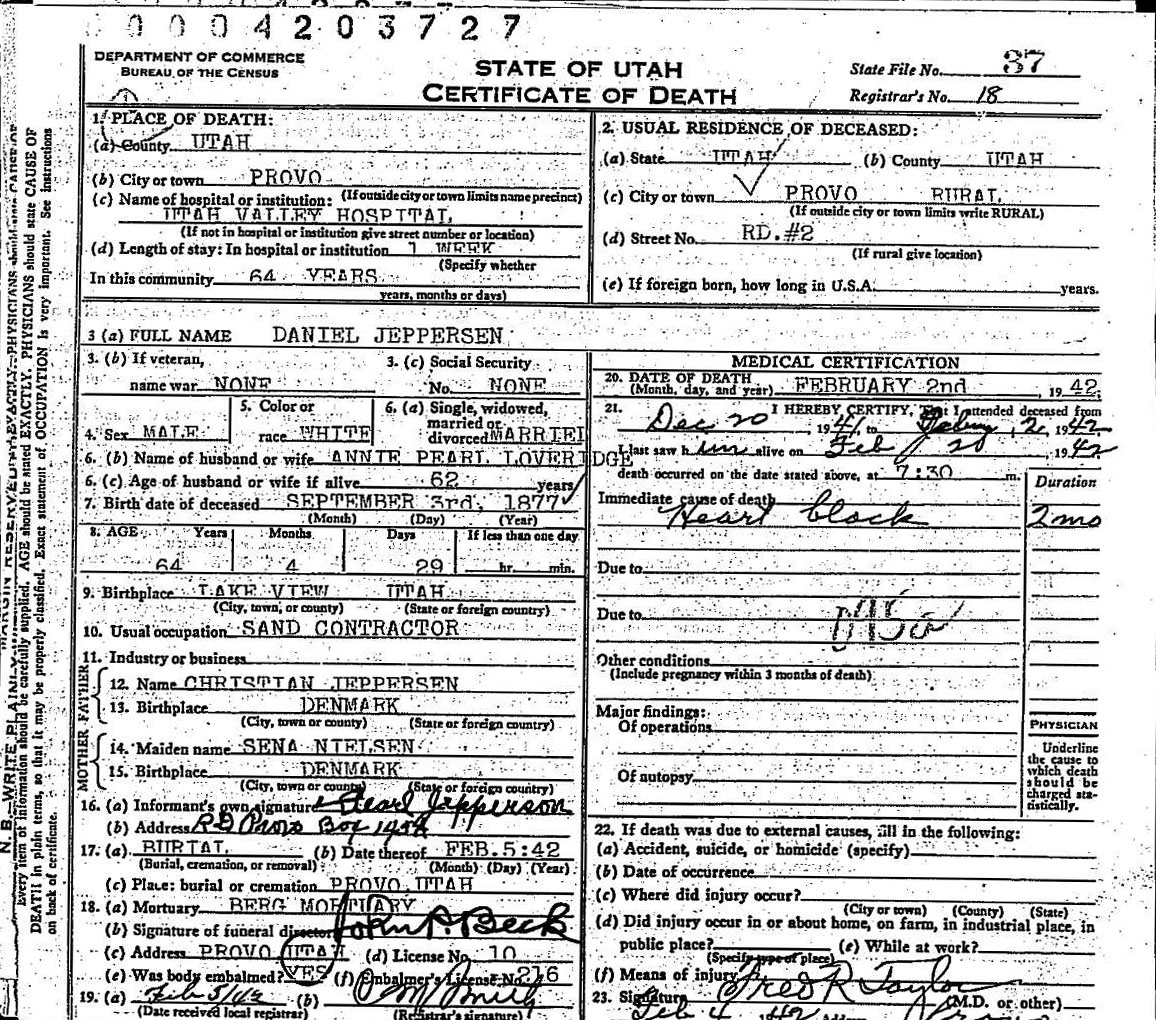 0 0 0 0 4 2 0 3 7 2 7
DEPARTMENT OF COMMERCE
BUREAU OF THE CENSUS
STATE OF UTAH
CERTIFICATE OF DEATH
State File No. 37
Registrar's No. 18
1. PLACE OF DEATH:
(a) County UTAH
(b) City or town PROVO
(If outside city or town limits name precinct)
(c) Name of hospital or institution:
UTAH VALLEY HOSPITAL
(If not in hospital or institution give street number or location)
(d) Length of stay: In hospital or institution 1 WEEK
(Specify whether
In this community 64 YEARS
years, months or days)
2. USUAL RESIDENCE OF DECEASED:
(a) State UTAH (b) County UTAH
(c) City or town PROVO RURAL
(If outside city or town limits write RURAL)
(d) Street No. RD.#2
(If rural give location)
(e) If foreign born, how long in U.S.A. years.
3 (a) FULL NAME DANIEL JEPPERSEN
3. (b) If veteran,
name war NONE
3. (c) Social Security
No. NONE
4. Sex MALE
5. Color or
race WHITE
6. (a) Single, widowed,
married or
divorced MARRIED
6. (b) Name of husband or wife ANNIE PEARL LOVERIDGE
6. (c) Age of husband or wife if alive 62 years
7. Birth date of deceased SEPTEMBER 3rd, 1877
(Month) (Day) (Year)
8. AGE Years Months Days If less than one day
64 4 29 hr. min.
9. Birthplace LAKE VIEW UTAH
(City, town, or county) (State or foreign country)
10. Usual occupation SAND CONTRACTOR
11. Industry or business
FATHER
12. Name CHRISTIAN JEPPERSEN
13. Birthplace DENMARK
(City, town or county) (State or foreign country)
MOTHER
14. Maiden name SENA NIELSEN
15. Birthplace DENMARK
(City, town or county) (State or foreign country)
16. (a) Informant's own signature Pearl Jepperson
(b) Address RD Provo Box 145A
17. (a) BURIAL (b) Date thereof FEB.5:42
(Burial, cremation, or removal) (Month) (Day) (Year)
(c) Place: burial or cremation PROVO UTAH
18. (a) Mortuary BERG MORTUARY
(b) Signature of funeral director John A. Beck
(c) Address PROVO UTAH (d) License No. 10
(e) Was body embalmed? YES (f) Embalmer's License No. 216
19. (a) Feb 5/42 (b)
(Date received local registrar) (Registrar's signature)
MEDICAL CERTIFICATION
20. DATE OF DEATH
(Month, day, and year) FEBRUARY 2nd 19 42
21. I HEREBY CERTIFY, That I attended deceased from
Dec 20 1941, to 2, 1942
I last saw him alive on Feb 20, 1942
death occurred on the date stated above, at 7:30 m.
Duration
Immediate cause of death
Heart block 2 mo
Due to
Due to
Other conditions
(Include pregnancy within 3 months of death)
Major findings:
Of operations
Of autopsy
PHYSICIAN
Underline
the cause to
which death
should be
charged sta-
tistically.
22. If death was due to external causes, fill in the following:
(a) Accident, suicide, or homicide (specify)
(b) Date of occurrence
(c) Where did injury occur?
(City or town) (County) (State)
(d) Did injury occur in or about home, on farm, in industrial place, in
public place? (e) While at work?
(Specify type of place)
(f) Means of injury
23. Signature Fred R Taylor (M.D. or other)
Feb 4 1942
N. B.—WRITE PLAINLY
MARGIN RESERVED
Every item of information should be carefully supplied. AGE should be stated EXACTLY. PHYSICIANS should state CAUSE OF
DEATH in plain terms, so that it may be properly classified. Exact statement of OCCUPATION is very important. See instructions
on back of certificate.